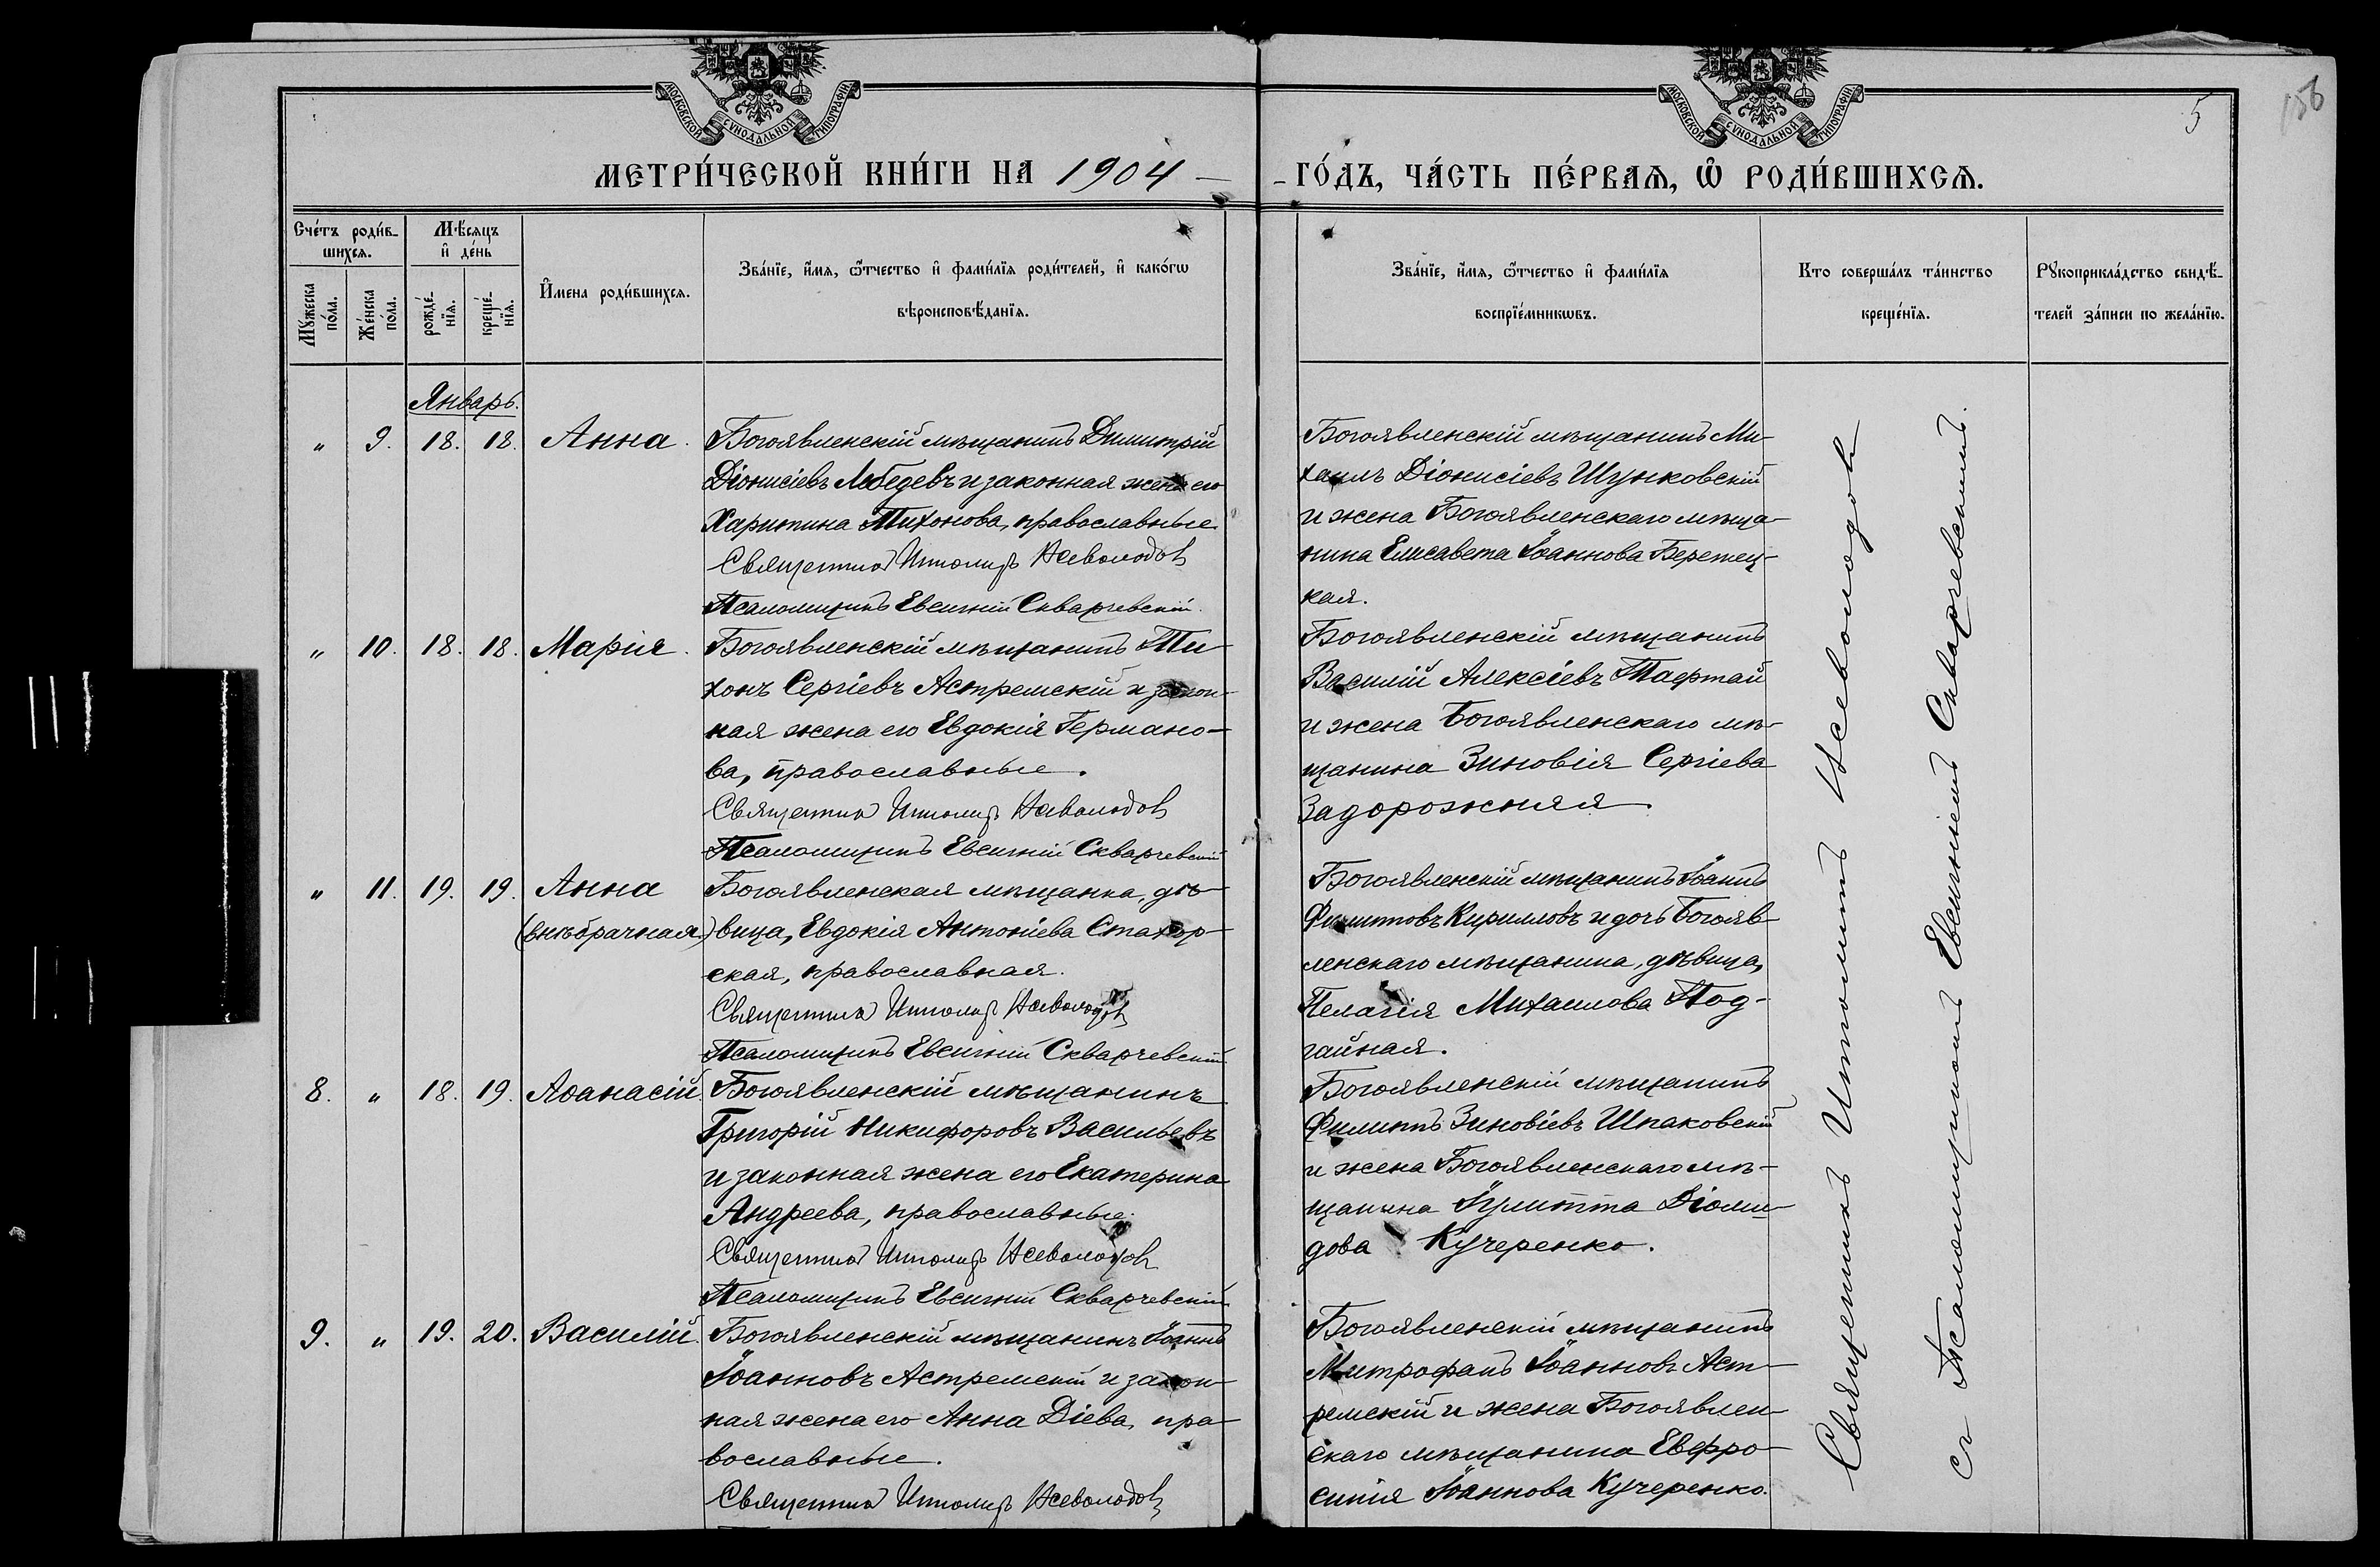 МОСКОВСКОЙ СѴНОДАЛЬНОЙ ТИПОГРАФІИ
МОСКОВСКОЙ СѴНОДАЛЬНОЙ ТИПОГРАФІИ
5
156
МЕТРИ́ЧЕСКОЙ КНИ́ГИ НА 1904 — ГО́ДЪ, ЧА́СТЬ ПЕ́РВАѦ, Ѡ҆ РОДИ́ВШИХСѦ.
Сче́тъ роди́в-
шихсѧ.
Мꙋ́жеска
по́ла.
Же́нска
по́ла.
Мѣ́сѧцъ
и҆ де́нь
рожде́-
нїѧ.
креще́-
нїѧ.
И҆мена роди́вшихсѧ.
Зва́нїе, и҆́мѧ, ѻ҆́тчество и҆ фами́лїѧ роди́телей, и҆ како́гѡ
вѣроисповѣ́данїѧ.
Зва́нїе, и҆́мѧ, ѻ҆́тчество и҆ фами́лїѧ
воспрїе́мникѡвъ.
Кто соверша́лъ та́инство
креще́нїѧ.
Рꙋкоприкла́дство свидѣ́-
телей за́писи по жела́нїю.
Январь.
" 9. 18. 18. Анна.
Богоявленскій мѣщанинъ Димитрій
Діонисіевъ Лебедевъ и законная жена его
Харитина Тихонова, православные
Священникъ Ипполитъ Всеволодовъ
Псаломщикъ Евсигній Скварчевскій.
Богоявленскій мѣщанинъ Ми-
хаилъ Діонисіевъ Шунковскій
и жена Богоявленскаго мѣща-
нина Елисавета Іоаннова Березец-
кая.
" 10. 18. 18. Марія.
Богоявленскій мѣщанинъ Ти-
хонъ Сергіевъ Астремскій и закон-
ная жена его Евдокія Германо-
ва, православные.
Священникъ Ипполитъ Всеволодовъ
Псаломщикъ Евсигній Скварчевскій
Богоявленскій мѣщанинъ
Василій Алексіевъ Тафтай
и жена Богоявленскаго мѣ-
щанина Зиновія Сергіева
Задорожняя.
" 11. 19. 19. Анна
(внѣбрачная)
Богоявленская мѣщанка, дѣ-
вица, Евдокія Антоніева Стахор-
ская, православная.
Священникъ Ипполитъ Всеволодовъ
Псаломщикъ Евсигній Скварчевскій
Богоявленскій мѣщанинъ Іоаннъ
Филипповъ Кирилловъ и дочь Богояв-
ленскаго мѣщанина, дѣвица,
Пелагія Михаилова Под-
гайная.
8. " 18. 19. Аѳанасій.
Богоявленскій мѣщанинъ
Григорій Никифоровъ Васильевъ
и законная жена его Екатерина
Андреева, православные.
Священникъ Ипполитъ Всеволодовъ
Псаломщикъ Евсигній Скварчевскій
Богоявленскій мѣщанинъ
Филиппъ Зиновіевъ Шпаковскій
и жена Богоявленскаго мѣ-
щанина Іулитта Діоми-
дова Кучеренко.
9. " 19. 20. Василій.
Богоявленскій мѣщанинъ Іоаннъ
Іоанновъ Астремскій и закон-
ная жена его Анна Діева, пра-
вославные.
Священникъ Ипполитъ Всеволодовъ
Богоявленскій мѣщанинъ
Митрофанъ Іоанновъ Аст-
ремскій и жена Богоявлен-
скаго мѣщанина Евфро-
синія Іоаннова Кучеренко.
Священникъ Ипполитъ Всеволодовъ
съ Псаломщикомъ Евсигніемъ Скварчевскимъ.